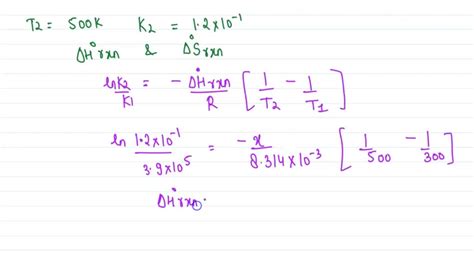 T2 = 500K K2 = 1.2x10⁻¹
ΔH°rxn & ΔS°rxn
ln K2/K1 = - ΔH°rxn/R [ 1/T2 - 1/T1 ]
ln 1.2x10⁻¹/3.9x10⁵ = -x/8.314x10⁻³ [ 1/500 - 1/300 ]
ΔH°rxn.